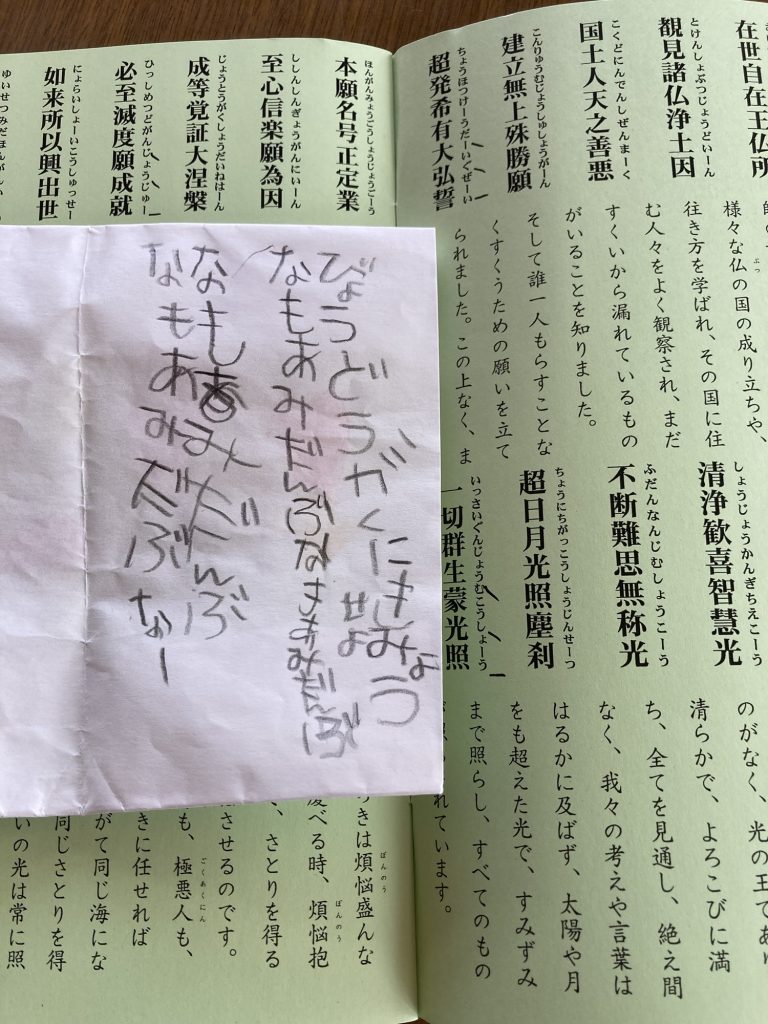 在世自在王仏所
とけんしょぶつじょうどいーん
覩見諸仏浄土因
こくどにんでんしぜんまーく
国土人天之善悪
こんりゅうむじょうしゅしょうがーん
建立無上殊勝願
ちょうほつけーうだーいぐぜーい
超発希有大弘誓
様々な仏の国の成り立ちや、
往き方を学ばれ、その国に住
む人々をよく観察され、まだ
すくいから漏れているもの
がいることを知りました。
そして誰一人もらすことな
くすくうための願いを立て
られました。この上なく、ま
しょうじょうかんぎちえこーう
清浄歓喜智慧光
ふだんなんじむしょうこーう
不断難思無称光
ちょうにちがっこうしょうじんせーつ
超日月光照塵刹
いっさいぐんじょうむこうしょーう
一切群生蒙光照
のがなく、光の王であり
清らかで、よろこびに満
ち、全てを見通し、絶え間
なく、我々の考えや言葉は
はるかに及ばず、太陽や月
をも超えた光で、すみずみ
まで照らし、すべてのもの
れています。
ほんがんみょうごうしょうじょうごーう
本願名号正定業
ししんしんぎょうがんにいーん
至心信楽願為因
じょうとうがくしょうだいねはーん
成等覚証大涅槃
ひっしめつどがんじょうじゅー
必至滅度願成就
にょらいしょーいこうしゅっせー
如来所以興出世
びょうどうがくにきみょう
せよ
なもあみだんぶなもあみだんぶ
なもあみだんぶ
なもあみだぶなー
きは煩悩盛んな
べる時、煩悩抱
、さとりを得る
させるのです。
も、極悪人も、
きに任せれば
がて同じ海にな
同じさとりを得
いの光は常に照